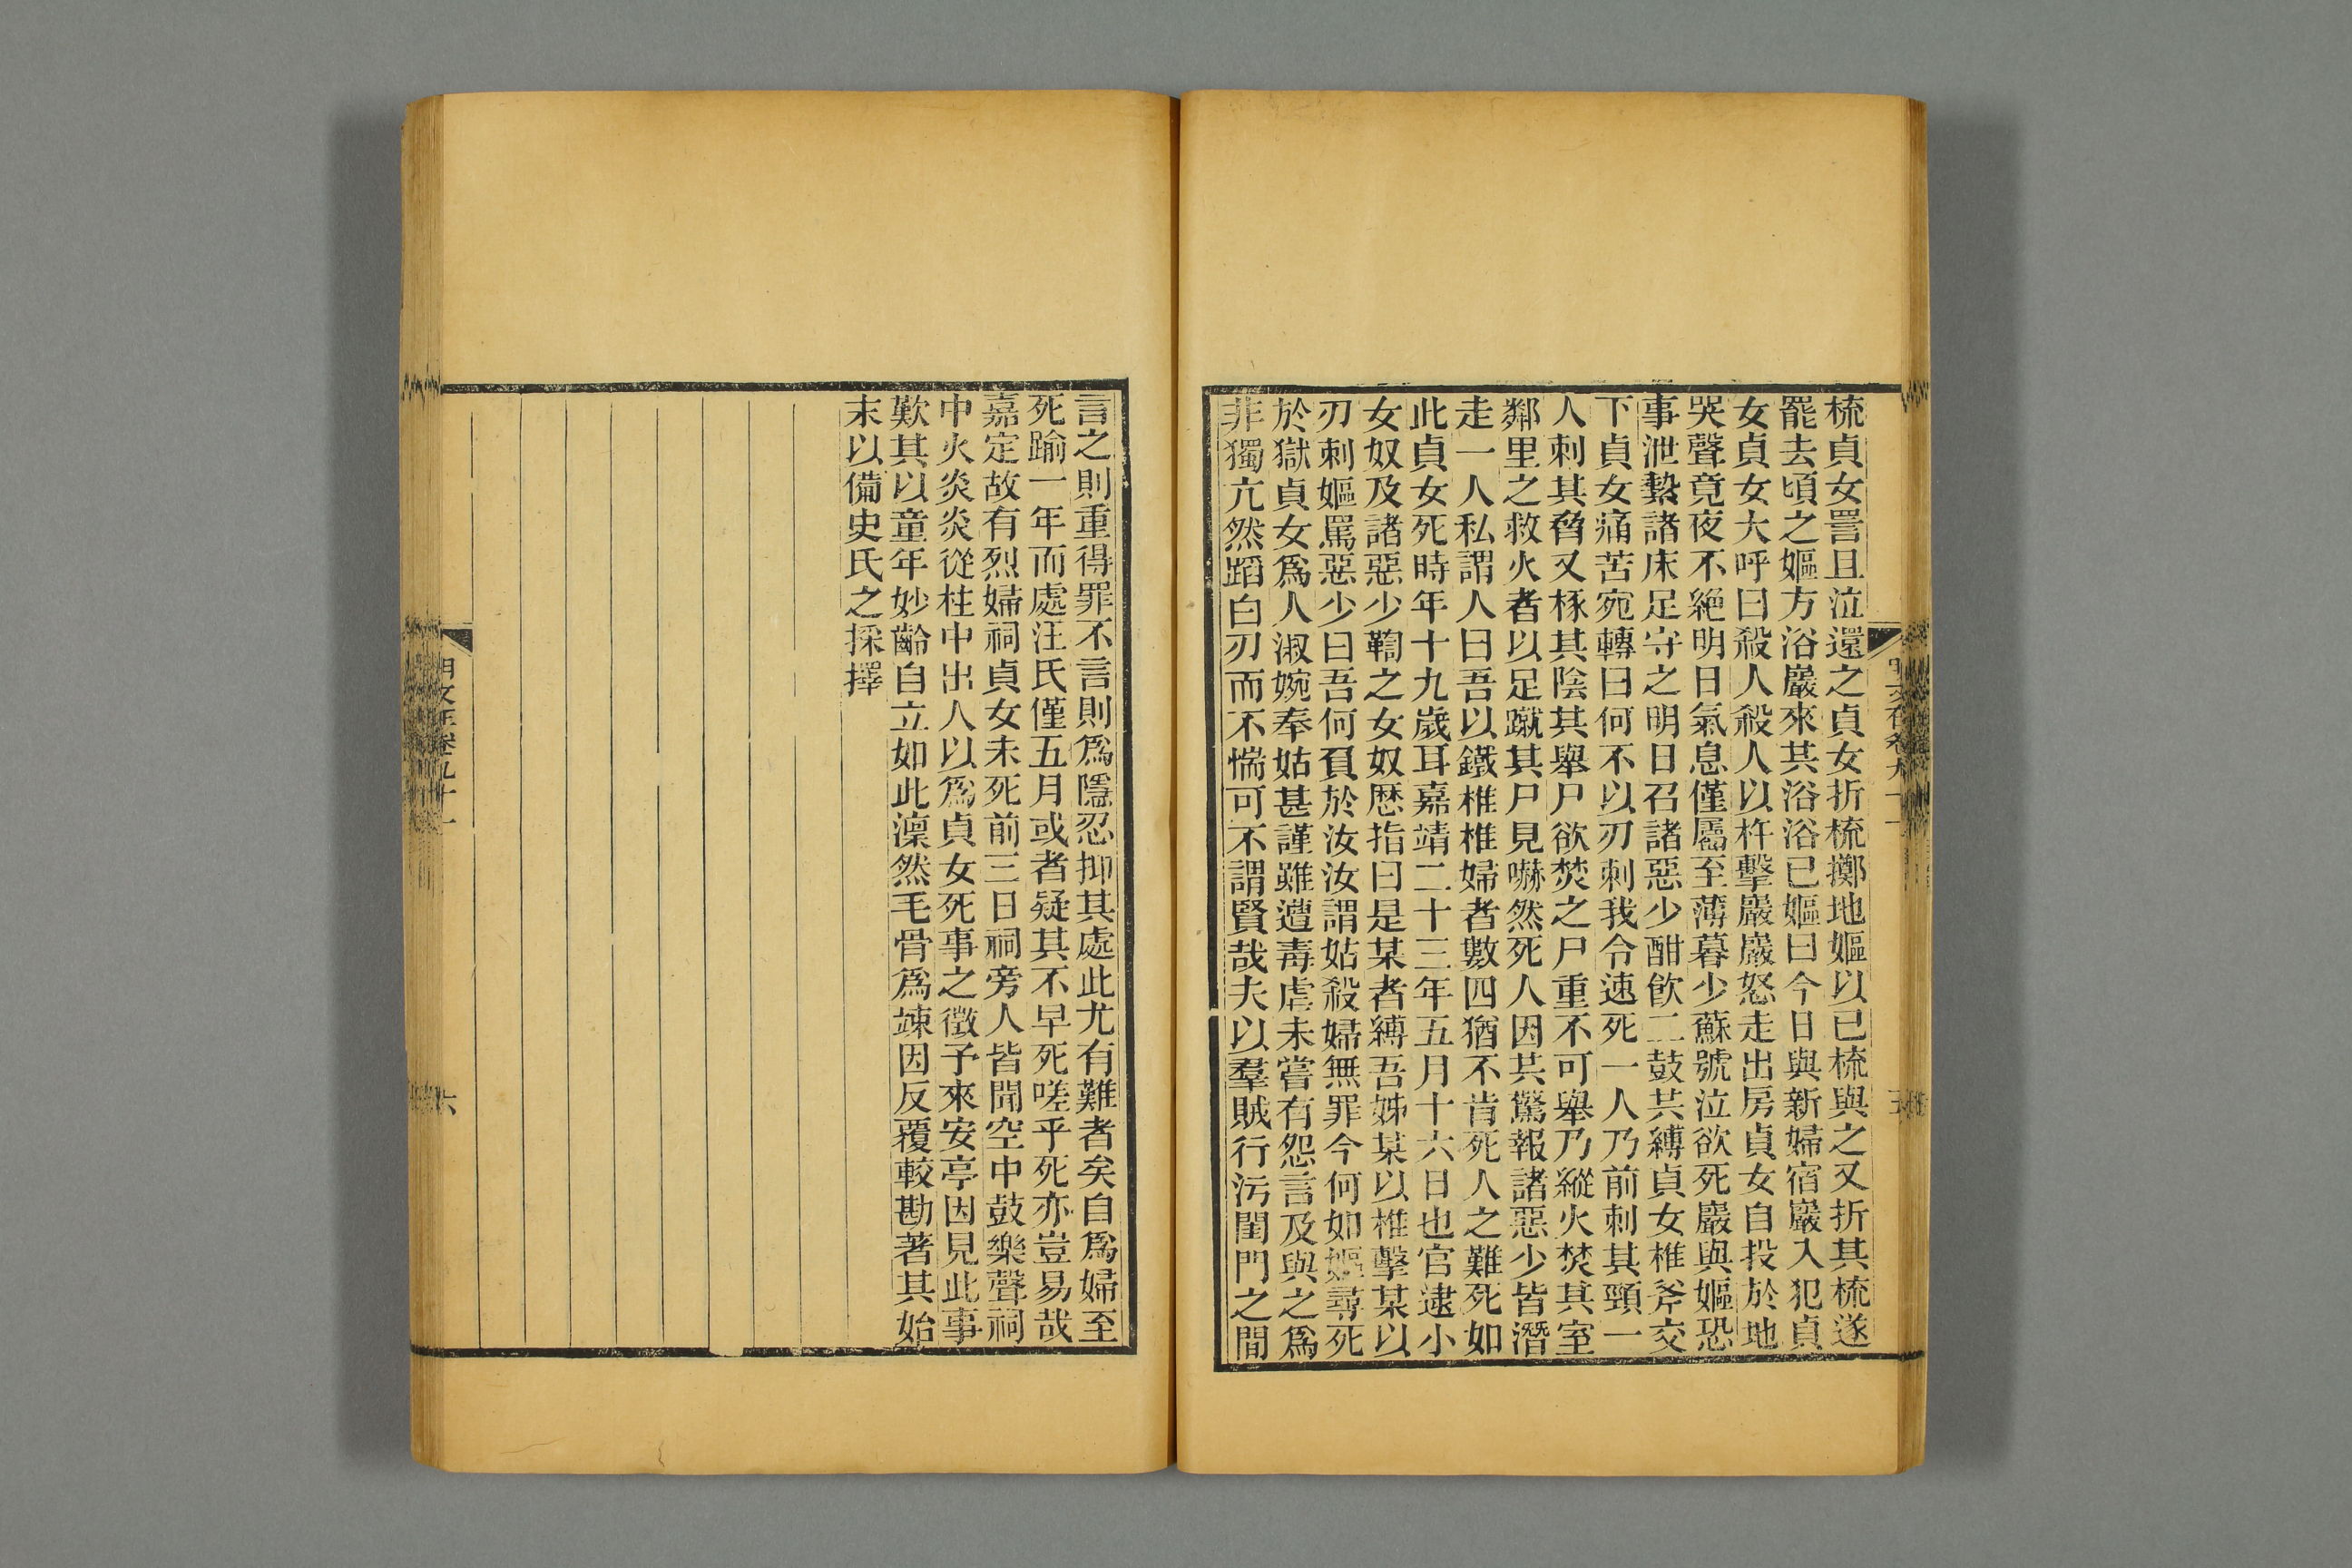 梳貞女詈且泣還之貞女折梳擲地嫗以已梳與之又折其梳遂
罷去頃之嫗方浴巖來其浴浴已嫗曰今日與新婦宿巖入犯貞
女貞女大呼曰殺人殺人以杵擊巖巖怒走出房貞女自投於地
哭聲竟夜不絶明日氣息僅屬至薄暮少蘇號泣欲死巖與嫗恐
事泄縶諸床足守之明日召諸惡少酣飮二鼓共縛貞女椎斧交
下貞女痛苦宛轉曰何不以刃刺我令速死一人乃前刺其頸一
人刺其脅又椓其陰其舉尸欲焚之尸重不可舉乃縱火焚其室
鄰里之救火者以足蹴其尸見嚇然死人因共驚報諸惡少皆潛
走一人私謂人曰吾以鐵椎椎婦者數四猶不肯死人之難死如
此貞女死時年十九歲耳嘉靖二十三年五月十六日也官逮小
女奴及諸惡少鞫之女奴歷指曰是某者縛吾姊某以椎擊某以
刃刺嫗罵惡少曰吾何負於汝汝謂姑殺婦無罪今何如嫗尋死
於獄貞女爲人淑婉奉姑甚謹雖遭毒虐未嘗有怨言及與之爲
非獨亢然蹈白刃而不惴可不謂賢哉夫以羣賊行污閨門之間
言之則重得罪不言則爲隱忍抑其處此尤有難者矣自爲婦至
死踰一年而處汪氏僅五月或者疑其不早死嗟乎死亦豈易哉
嘉定故有烈婦祠貞女未死前三日祠旁人皆聞空中鼓樂聲祠
中火炎炎從柱中出人以爲貞女死事之徵予來安亭因見此事
歎其以童年妙齡自立如此凜然毛骨爲竦因反覆較勘著其始
末以備史氏之採擇
明文在卷九十一
六